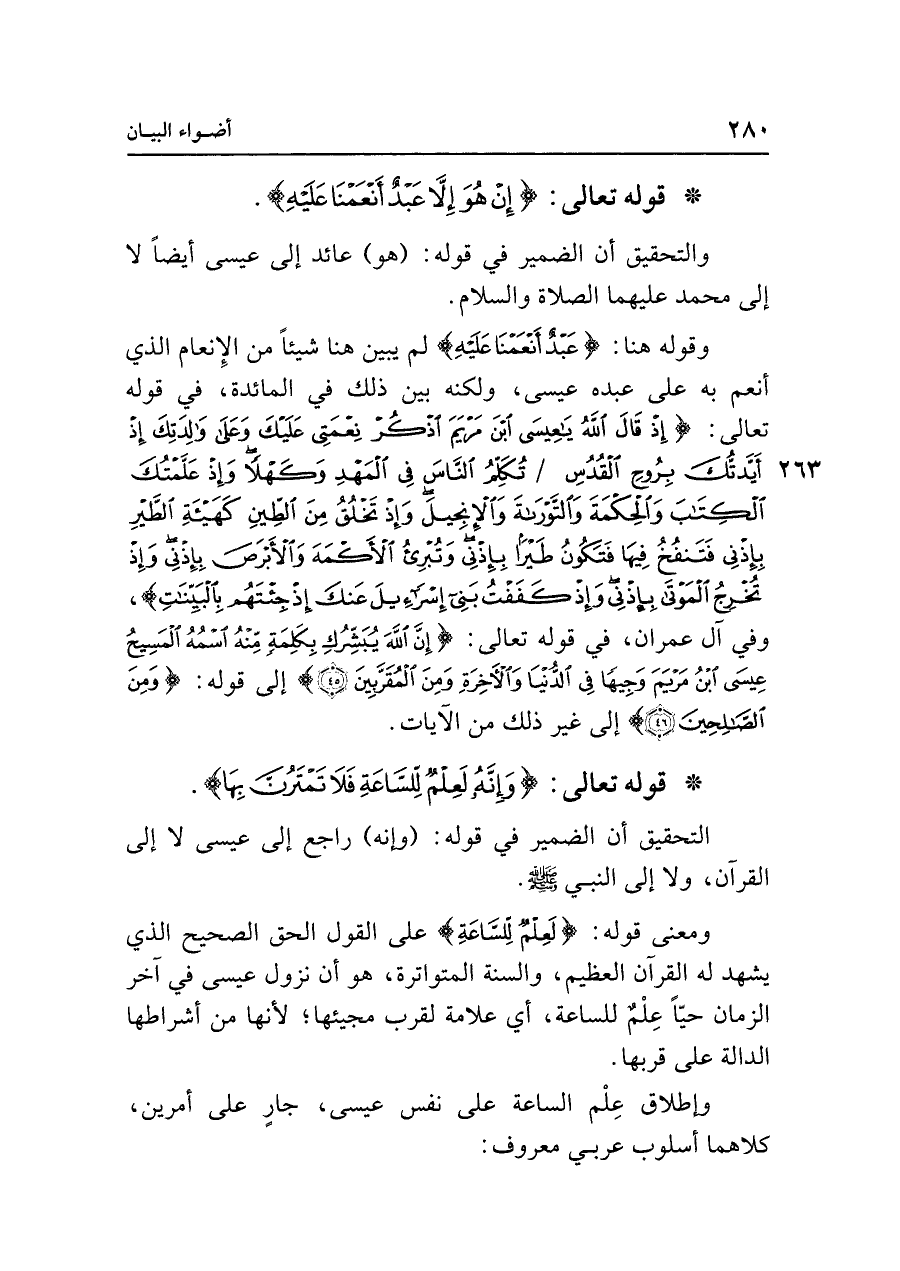 ٢٨٠ أضـواء البيـان
* قوله تعالى: ﴿إِنْ هُوَ إِلَّا عَبْدٌ أَنْعَمْنَا عَلَيْهِ﴾.
والتحقيق أن الضمير في قوله: (هو) عائد إلى عيسى أيضاً لا
إلى محمد عليهما الصلاة والسلام.
وقوله هنا: ﴿عَبْدٌ أَنْعَمْنَا عَلَيْهِ﴾ لم يبين هنا شيئاً من الإنعام الذي
أنعم به على عبده عيسى، ولكنه بين ذلك في المائدة، في قوله
تعالى: ﴿إِذْ قَالَ ٱللَّهُ يَٰعِيسَى ٱبْنَ مَرْيَمَ ٱذْكُرْ نِعْمَتِى عَلَيْكَ وَعَلَىٰ وَٰلِدَتِكَ إِذْ
٢٦٣ أَيَّدتُّكَ بِرُوحِ ٱلْقُدُسِ / تُكَلِّمُ ٱلنَّاسَ فِى ٱلْمَهْدِ وَكَهْلًا ۖ وَإِذْ عَلَّمْتُكَ
ٱلْكِتَٰبَ وَٱلْحِكْمَةَ وَٱلتَّوْرَىٰةَ وَٱلْإِنجِيلَ ۖ وَإِذْ تَخْلُقُ مِنَ ٱلطِّينِ كَهَيْـَٔةِ ٱلطَّيْرِ
بِإِذْنِى فَتَنفُخُ فِيهَا فَتَكُونُ طَيْرًۢا بِإِذْنِى ۖ وَتُبْرِئُ ٱلْأَكْمَهَ وَٱلْأَبْرَصَ بِإِذْنِى ۖ وَإِذْ
تُخْرِجُ ٱلْمَوْتَىٰ بِإِذْنِى ۖ وَإِذْ كَفَفْتُ بَنِىٓ إِسْرَٰٓءِيلَ عَنكَ إِذْ جِئْتَهُم بِٱلْبَيِّنَٰتِ﴾،
وفي آل عمران، في قوله تعالى: ﴿إِنَّ ٱللَّهَ يُبَشِّرُكِ بِكَلِمَةٍ مِّنْهُ ٱسْمُهُ ٱلْمَسِيحُ
عِيسَى ٱبْنُ مَرْيَمَ وَجِيهًا فِى ٱلدُّنْيَا وَٱلْأَخِرَةِ وَمِنَ ٱلْمُقَرَّبِينَ ٤٥﴾ إلى قوله: ﴿وَمِنَ
ٱلصَّٰلِحِينَ ٤٦﴾ إلى غير ذلك من الآيات.
* قوله تعالى: ﴿وَإِنَّهُۥ لَعِلْمٌ لِّلسَّاعَةِ فَلَا تَمْتَرُنَّ بِهَا﴾.
التحقيق أن الضمير في قوله: (وإنه) راجع إلى عيسى لا إلى
القرآن، ولا إلى النبـي ﷺ.
ومعنى قوله: ﴿لَعِلْمٌ لِّلسَّاعَةِ﴾ على القول الحق الصحيح الذي
يشهد له القرآن العظيم، والسنة المتواترة، هو أن نزول عيسى في آخر
الزمان حيّاً عِلْمٌ للساعة، أي علامة لقرب مجيئها؛ لأنها من أشراطها
الدالة على قربها.
وإطلاق عِلْم الساعة على نفس عيسى، جارٍ على أمرين،
كلاهما أسلوب عربـي معروف: